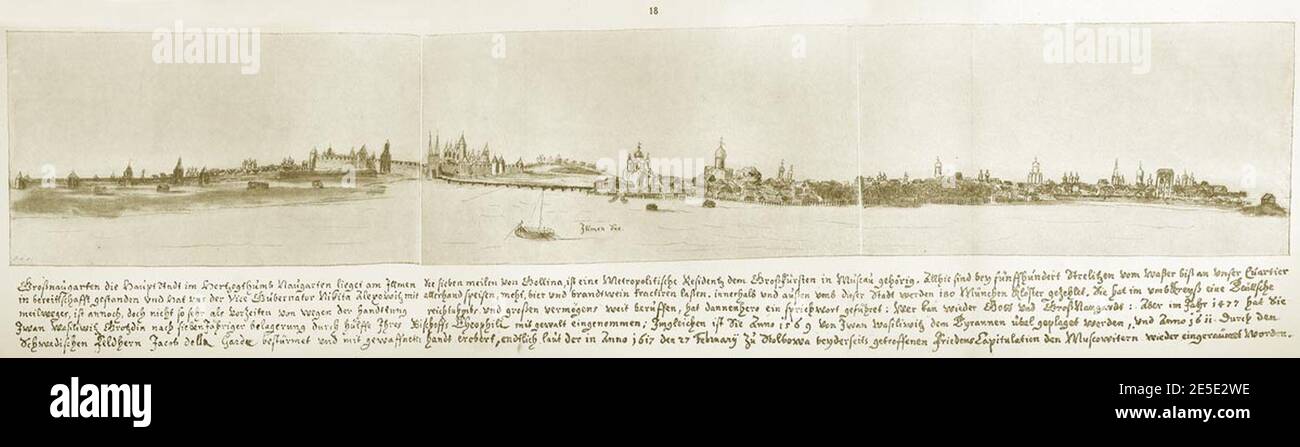 18
Ilmen See.
Großnaugarten die Haupt Stadt im Hertzogthumb Naugarten lieget am Ilmen See sieben meilen von Bollina, ist eine Metropolitische Residentz dem Großfürsten in Muscau gehörig. Allhie sind bey fünffhundert Strelitzen vom Waßer biß an unser Quartier
in bereittschafft gestanden und hat uns der Vice Gubernator Nikita Alexowitz mit allerhand speisen, meht, bier und brandtwein tractiren laßen. innerhalb und außen umb dieser Stadt werden 180 München Klöster gezehlet. Sie hat im umbkreyß eine
meilweges, ist annoch, doch nicht so sehr als vorzeiten von wegen der handlung reichthumbs und großen vermögens weit beruffen, hat dannenhero ein sprichwort geführet: Wer kan wieder Gott und Großnaugardt: Aber im Jahr 1477 hat Sie
Iwan Wasiliwitz Grotzdin nach siebenjähriger belagerung durch hülffe Ihres Bischoffs Theophili mit gewalt eingenommen, Ingleichen ist Sie Anno 1569 von Iwan Wasiliwitz dem Tyrannen übel geplaget worden, und Anno 1611. durch den
Schwedischen Feldherrn Jacob della Garde bestürmet und mit gewaffneter handt erobert, endlich laut der in Anno 1617 den 27 Februarij zu Stolbowa beyderseits getroffenen Friedens Capitulation den Muscowitern wieder eingeraumet worden.
alamy
Image ID: 2E5E2WE
www.alamy.com